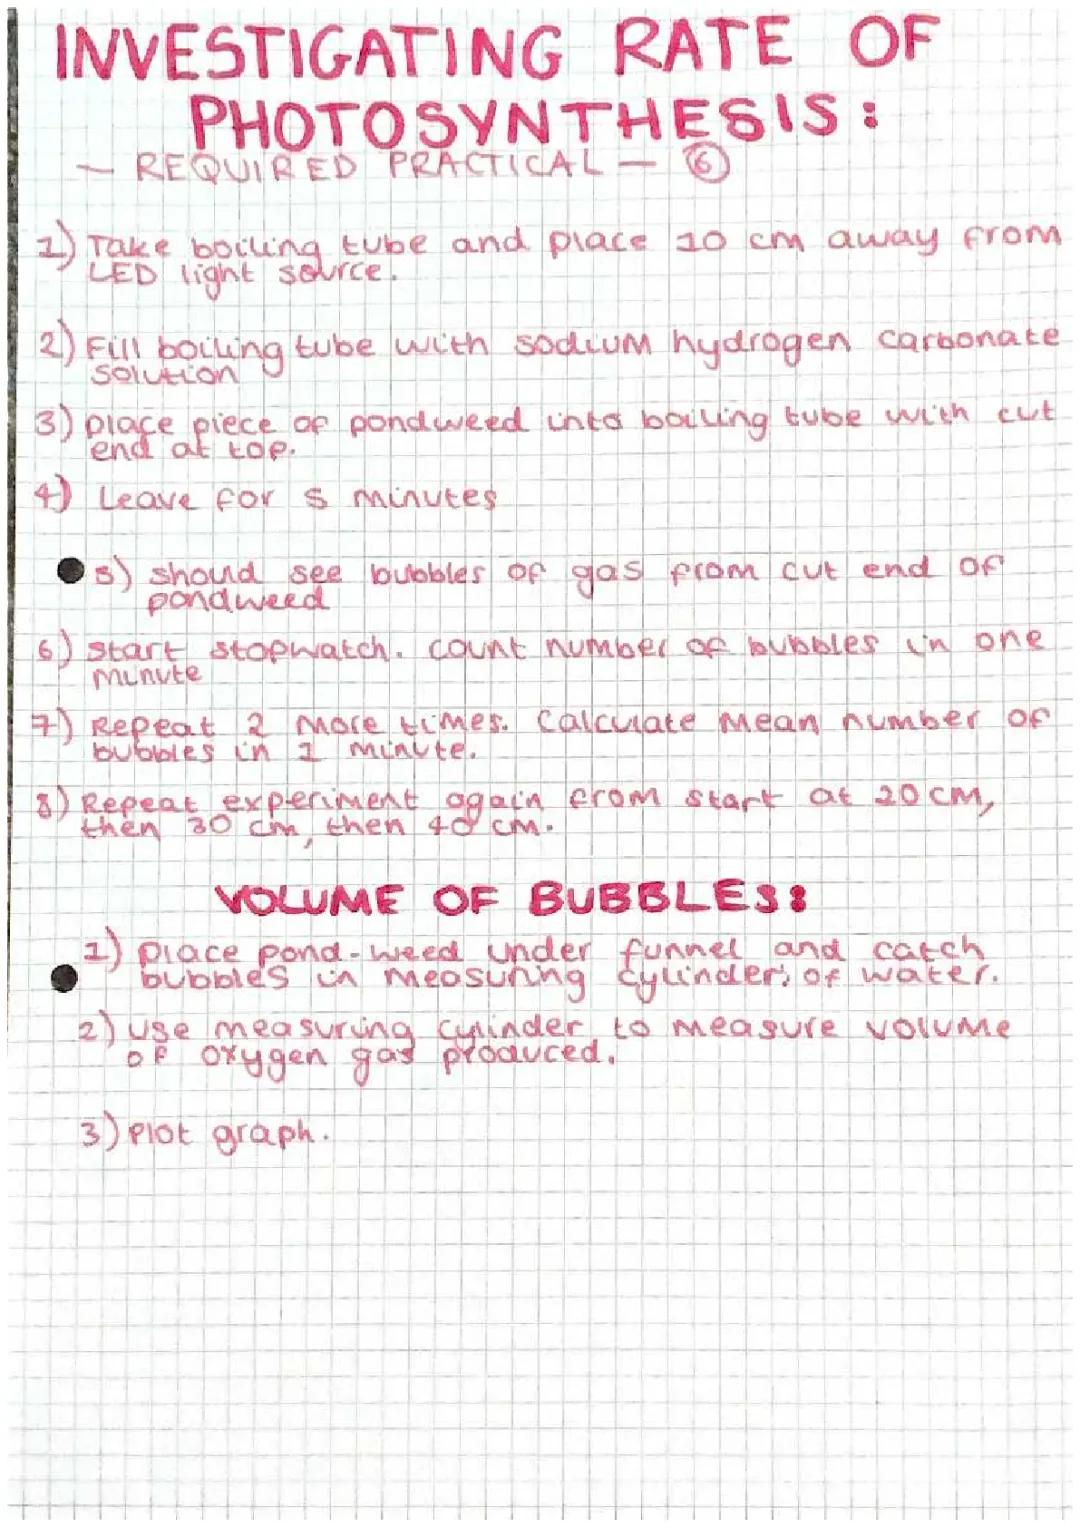 INVESTIGATING RATE OF
PHOTOSYNTHESIS:
— REQUIRED PRACTICAL — 6
1) Take boiling tube and place 10 cm away from
LED light source.
2) Fill boiling tube with sodium hydrogen carbonate
solution
3) place piece of pondweed into boiling tube with cut
end at top.
4) Leave for 5 minutes
5) shoud see bubbles of gas from cut end of
pondweed
6) start stopwatch. count number of bubbles in one
minute
7) Repeat 2 more times. Calculate mean number of
bubbles in 1 minute.
8) Repeat experiment again from start at 20 cm,
then 30 cm, then 40 cm.
VOLUME OF BUBBLES:
1) place pond-weed under funnel and catch
bubbles in measuring cylinder; of water.
2) use measuring cylinder to measure volume
of oxygen gas produced.
3) plot graph.